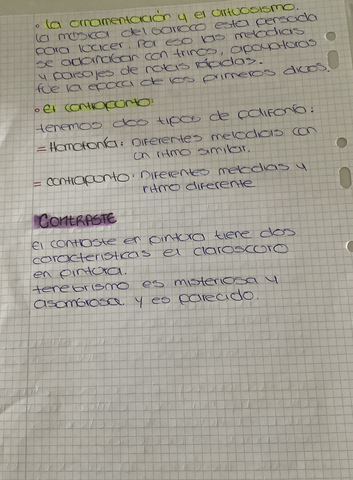 • La ornamentación y el virtuosismo.
La música del barroco esta pensada
para lucirse. Por eso las melodias
se adornaban con trinos, apoyaturas
y pasajes de notas rápidas.
fue la epoca de los primeros divos.
• el contrapunto:
tenemos dos tipos de polifonía:
= Homofonía: Diferentes melodias con
un ritmo similar.
= contrapunto: Diferentes melodias y
ritmo diferente
CONTRASTE
el contraste en pintura tiene dos
caracteristicas el claroscuro
en pintura.
tenebrismo es misteriosa y
asombrosa y es parecido.